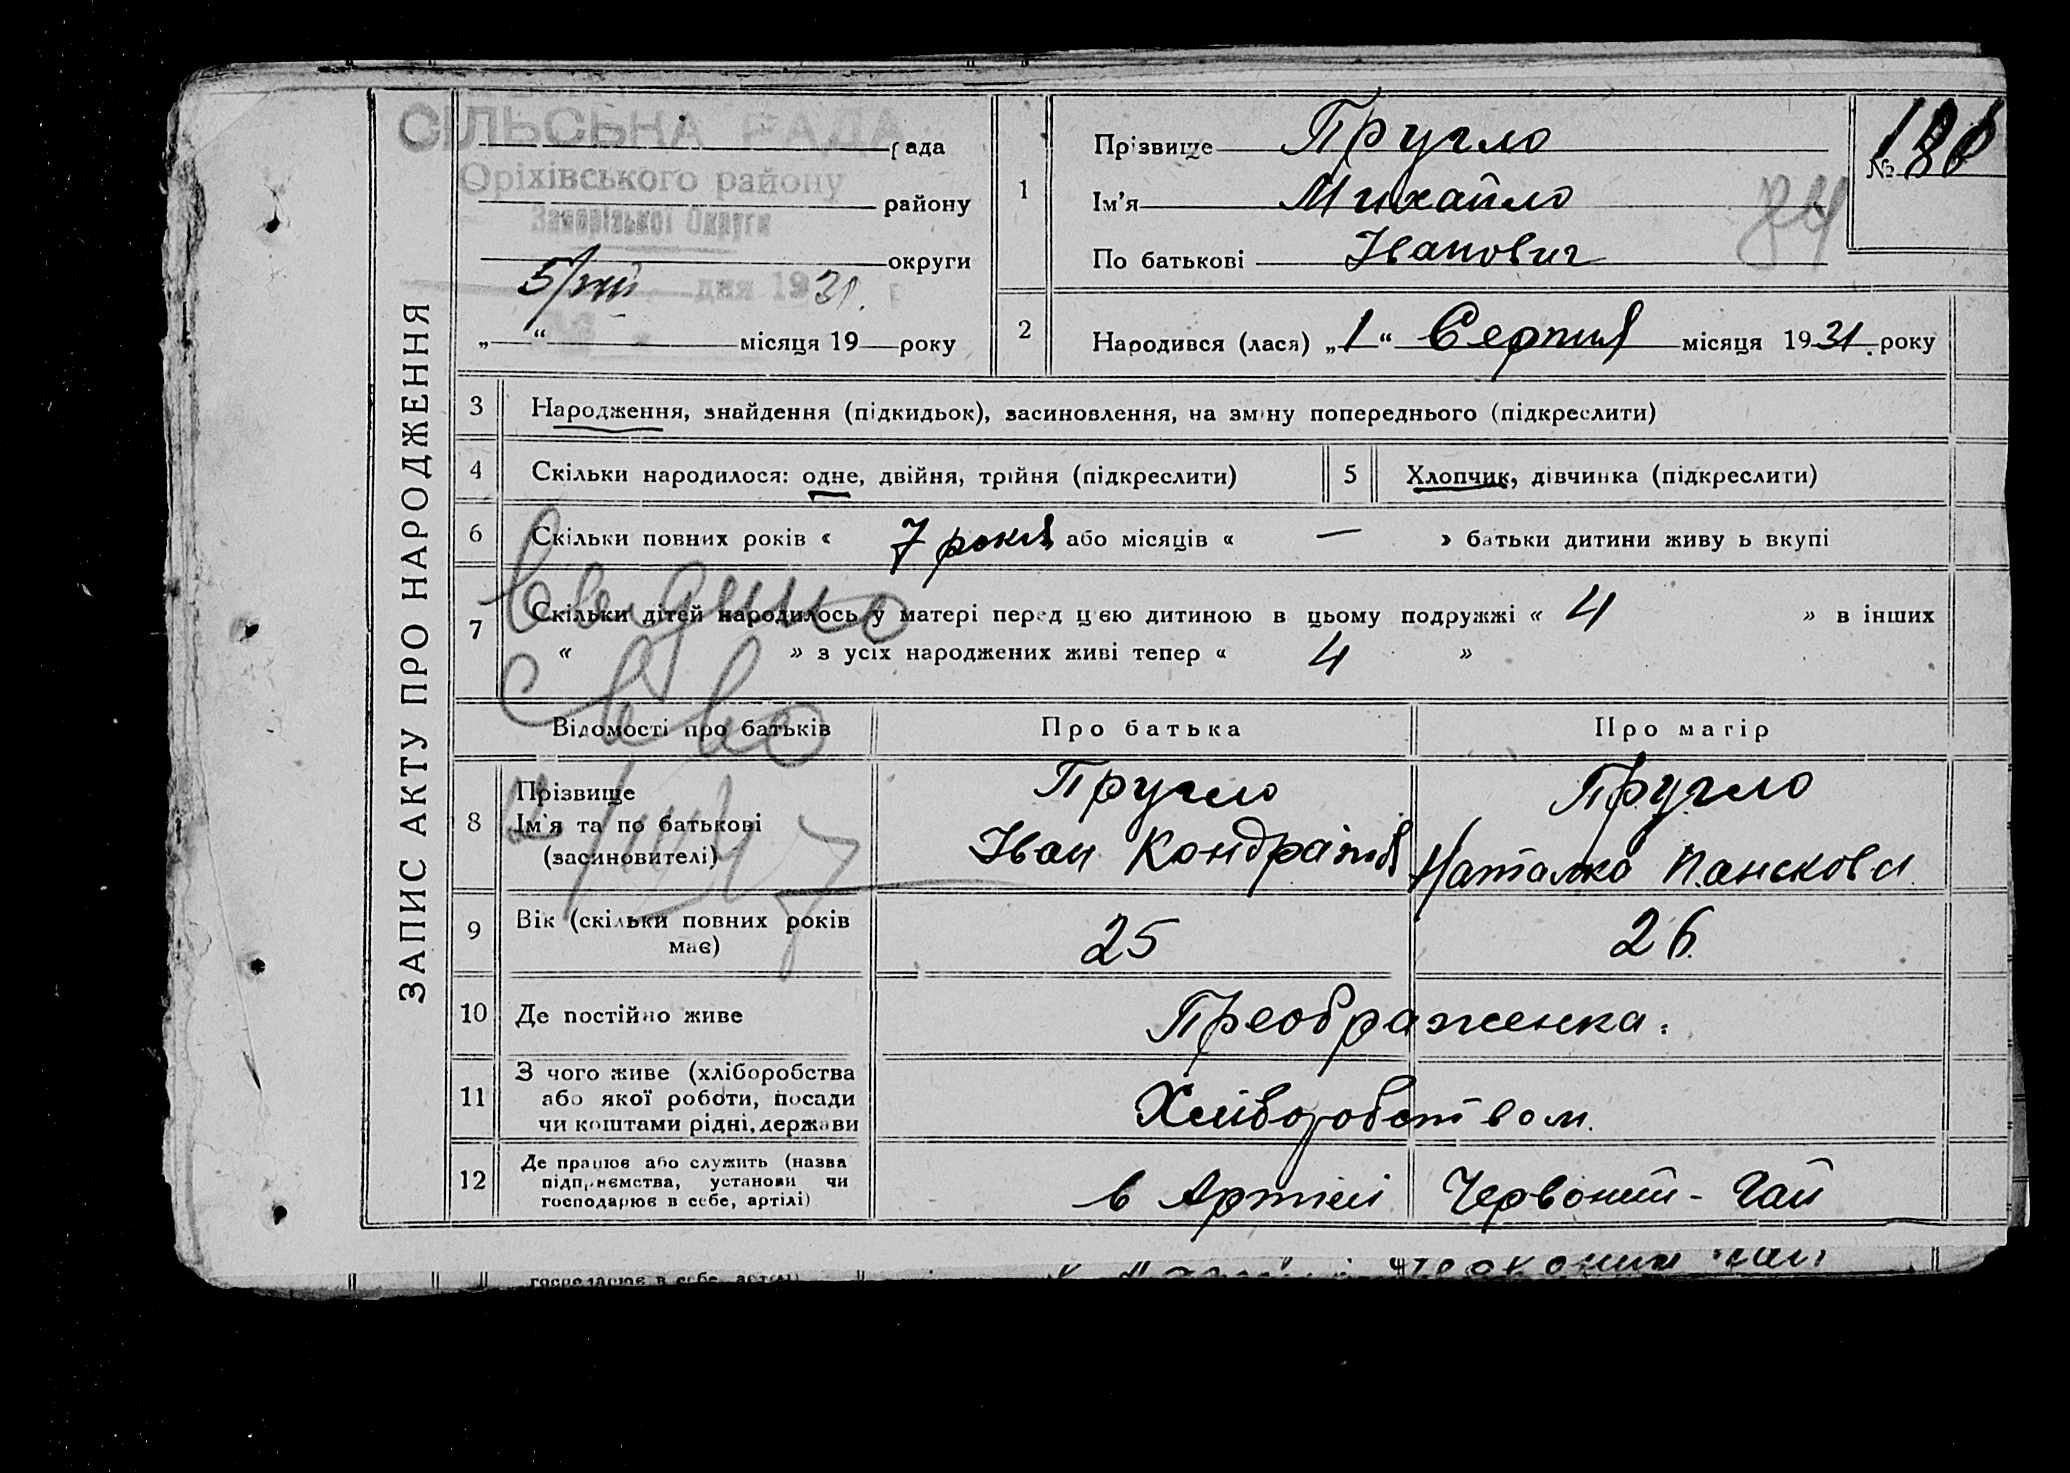 ЗАПИС АКТУ ПРО НАРОДЖЕННЯ
СІЛЬСЬКА РАДА
рада
Оріхівського району
району
Запорізької Округи
округи
дня 1931 г.
„ “ місяця 19 року
1
Прізвище Пругло
Ім'я Михайло
По батькові Іванович
№ 186
84
2
Народився (лася) „1“ Серпня місяця 1931 року
3 Народження, знайдення (підкидьок), засиновлення, на зміну попереднього (підкреслити)
4 Скільки народилося: одне, двійня, трійня (підкреслити) 5 Хлопчик, дівчинка (підкреслити)
6 Скільки повних років « 7 років або місяців « — » батьки дитини живуть вкупі
7 Скільки дітей народилось у матері перед цією дитиною в цьому подружжі « 4 » в інших
« » з усіх народжених живі тепер « 4 »
Видано
св во
Відомості про батьків Про батька Про матір
8 Прізвище
Ім'я та по батькові
(засиновителі)
Пругло
Іван Кондратів
Пругло
Наталка
9 Вік (скільки повних років
має)
25 26
10 Де постійно живе Преображенка.
11 З чого живе (хліборобства
або якої роботи, посади
чи коштами рідні, держави
Хліборобством.
12 Де працює або служить (назва
підприємства, установи чи
господарює в себе, артілі)
в Артілі Червоний-Гай
господарює в себе, артілі)